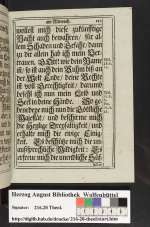 am Mitwoch.
wollest mich diese zukünfftige
Nacht auch bewahren / für al-
lem Schaden und Gefahr / dann
in dir allein hab ich mein Ver-
trauen. GOtt wie dein Nam
ist / so ist auch dein Ruhm biß an
der Welt Ende / deine Rechte
ist voll Gerechtigkeit / darumb
befehl ich nun mein Leib und
Seel in deine Hände. Es
benedeye mich nun die Göttliche
Majestät / und beschirme mich
die Heylige Dreyfaltigkeit / und
erhalte mich die ewige Einig-
keit. Es beschütze mich die un-
außsprechliche
erfreue mich die unentliche Süß-
Herzog August Bibliothek Wolfenbüttel
Signatur: 214.29 Theol.
http://diglib.hab.de/drucke/214-29-theol/start.htm